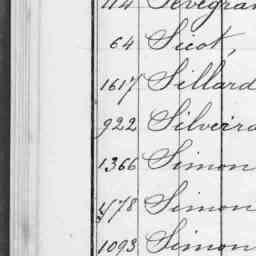 114 Sevegran
64 Sicot,
1617 Sillard
922 Silveira
1366 Simon
478 Simon
1093 Simon